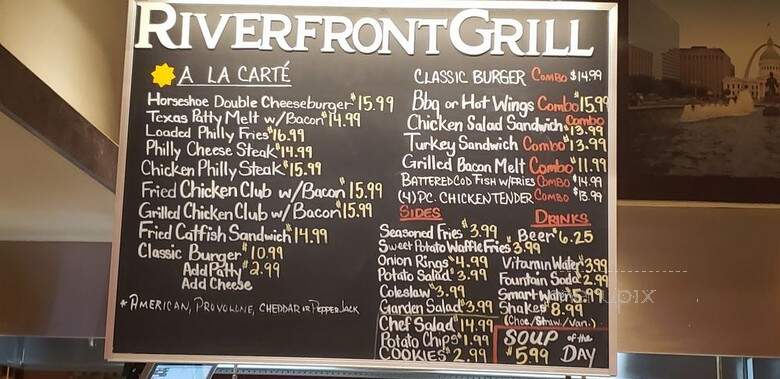 RIVERFRONT GRILL
A LA CARTÉ
Horseshoe Double Cheeseburger $15.99
Texas Patty Melt w/Bacon $14.99
Loaded Philly Fries $16.99
Philly Cheese Steak $14.99
Chicken Philly Steak $15.99
Fried Chicken Club w/Bacon $15.99
Grilled Chicken Club w/Bacon $15.99
Fried Catfish Sandwich $14.99
Classic Burger $10.99
Add Patty $2.99
Add Cheese
*AMERICAN, PROVOLONE, CHEDDAR or PEPPER JACK
CLASSIC BURGER COMBO $14.99
Bbq or Hot Wings Combo $15.99
Chicken Salad Sandwich Combo $13.99
Turkey Sandwich Combo $13.99
Grilled Bacon Melt Combo $11.99
BATTERED COD FISH W/FRIES COMBO $14.99
(4) PC. CHICKEN TENDER COMBO $13.99
SIDES
Seasoned Fries $3.99
Sweet Potato Waffle Fries $3.99
Onion Rings $4.99
Potato Salad $3.99
Coleslaw $3.99
Garden Salad $3.99
Chef Salad $14.99
Potato Chips $1.99
COOKIES $2.99
DRINKS
Beer $6.25
Vitamin Water $3.99
Fountain Soda $2.99
Smart Water $5.99
Shakes $8.99
(Choc/Straw/Van.)
SOUP of the
$5.99 DAY